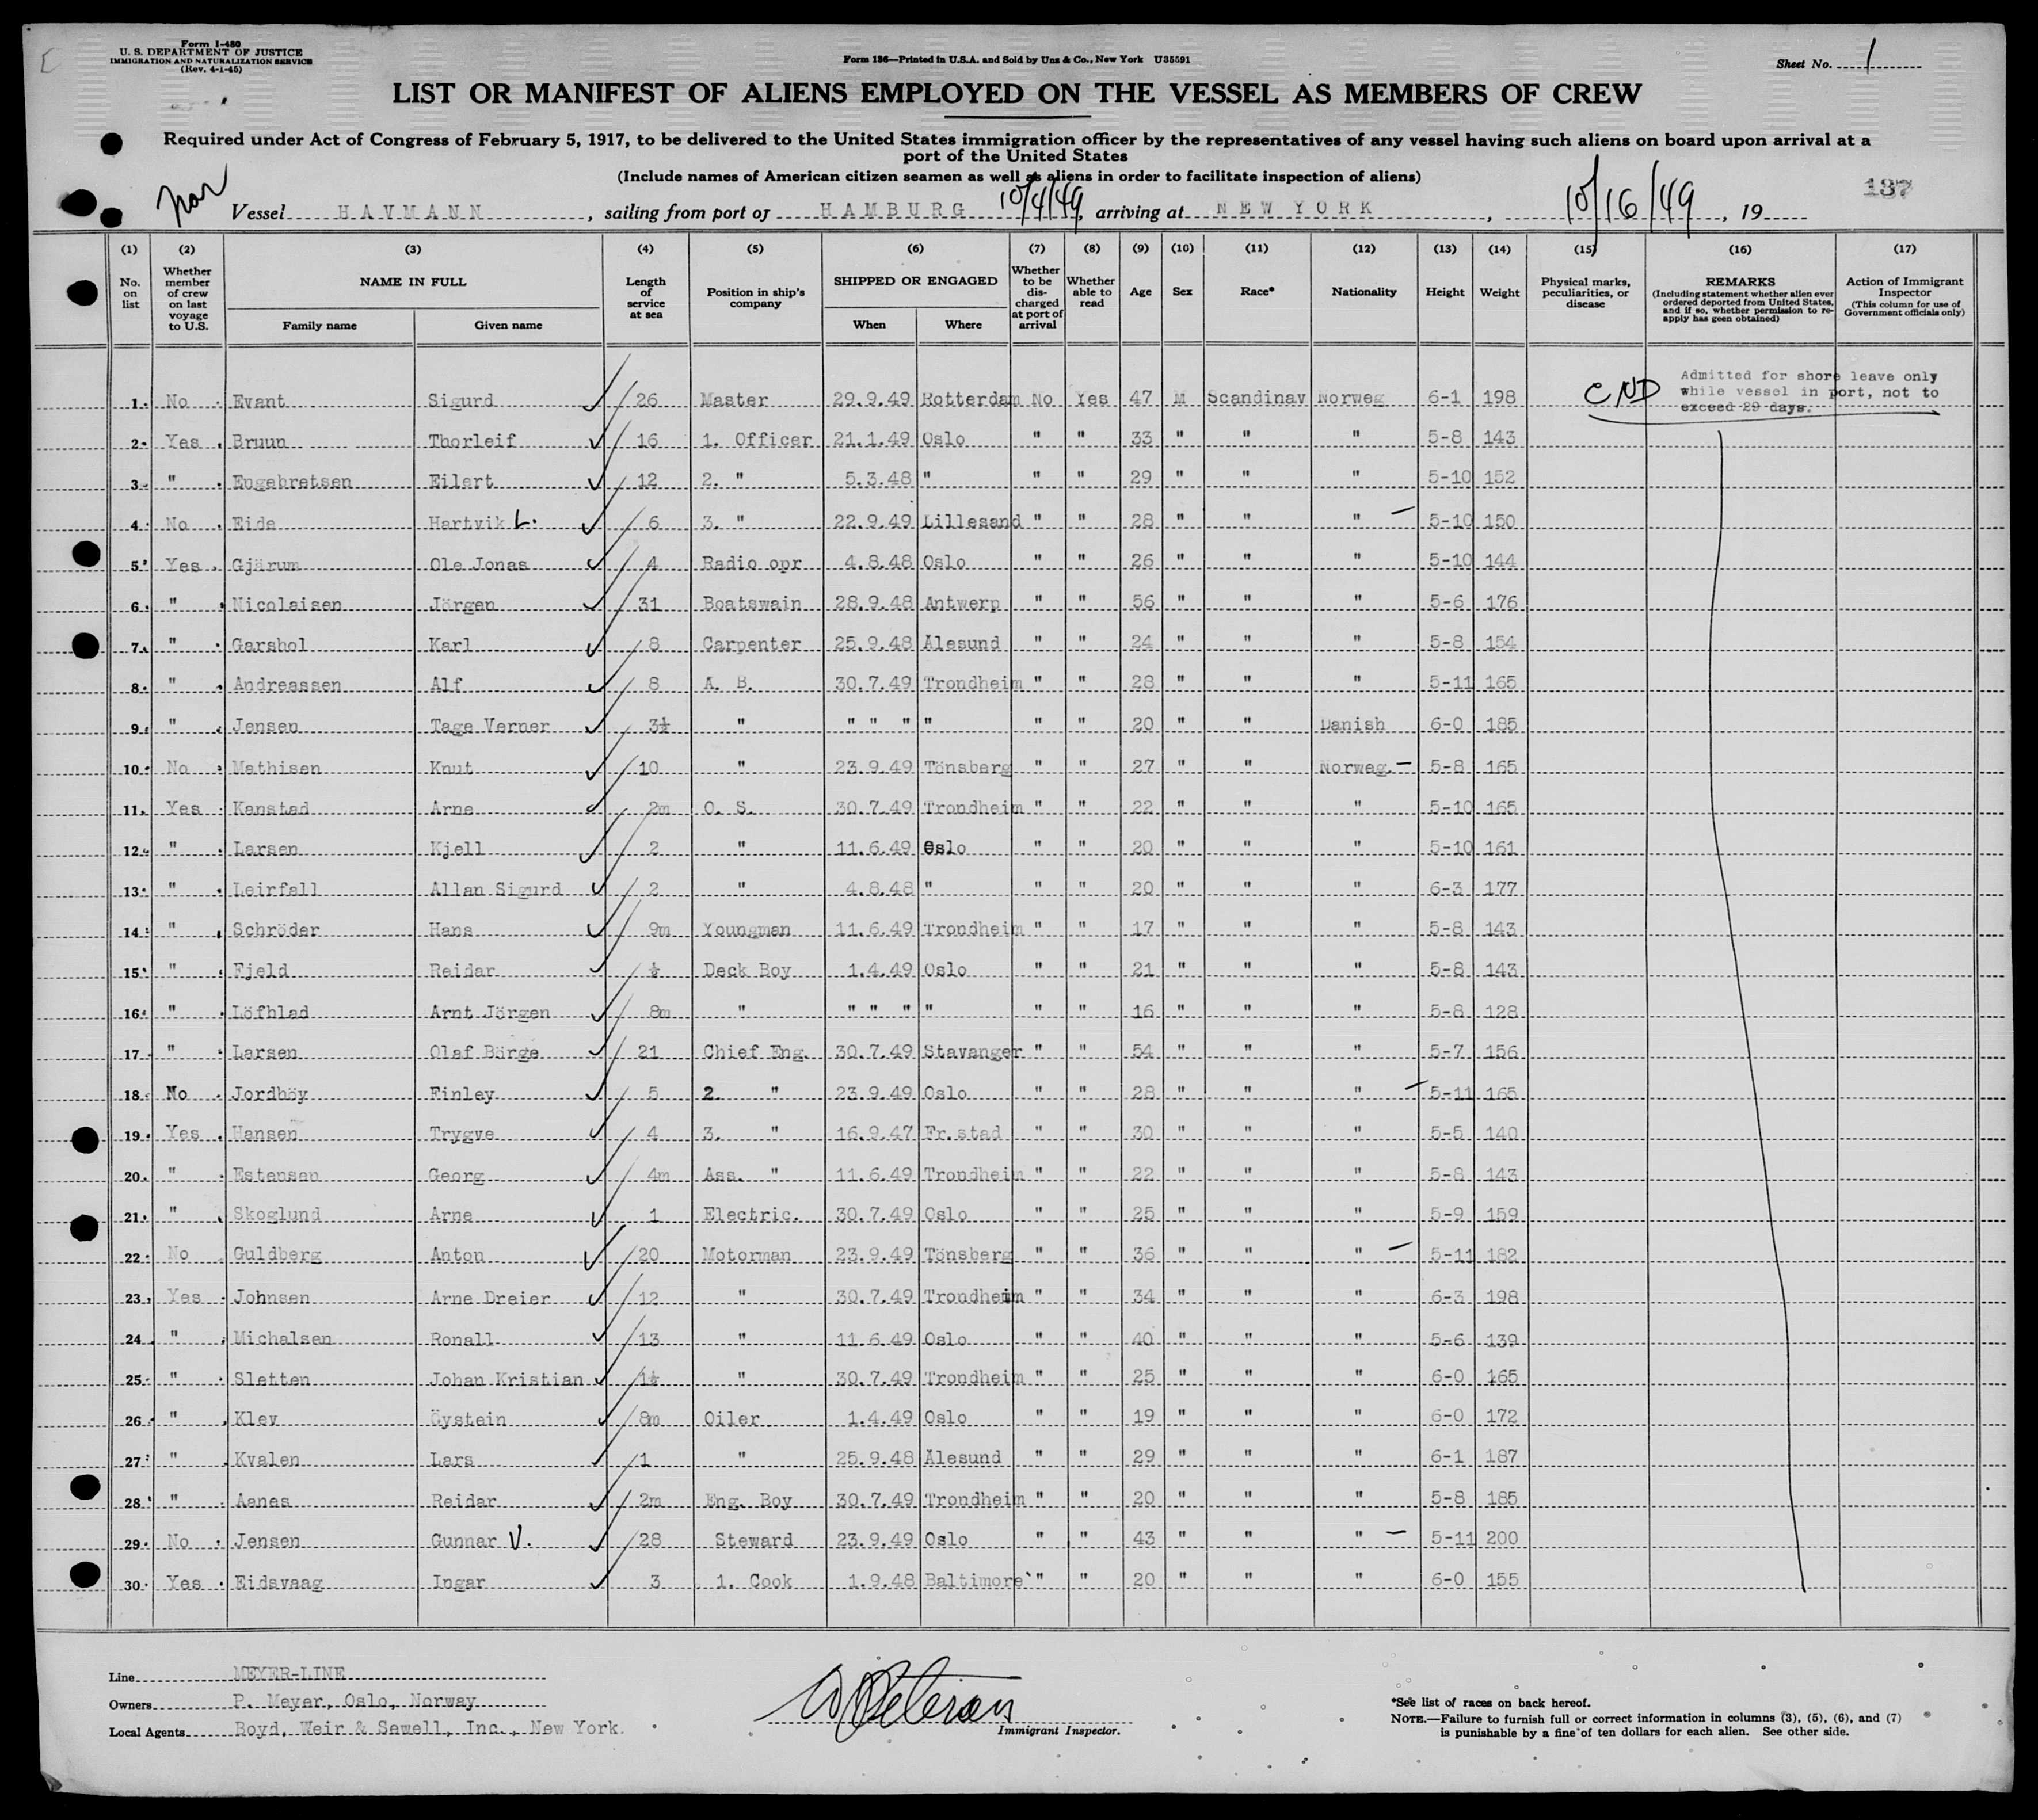 Form I-480
U. S. DEPARTMENT OF JUSTICE
IMMIGRATION AND NATURALIZATION SERVICE
(Rev. 4-1-45)
Form 136—Printed in U.S.A. and Sold by Unz & Co., New York U35591
Sheet No. 1
LIST OR MANIFEST OF ALIENS EMPLOYED ON THE VESSEL AS MEMBERS OF CREW
Required under Act of Congress of February 5, 1917, to be delivered to the United States immigration officer by the representatives of any vessel having such aliens on board upon arrival at a
port of the United States
(Include names of American citizen seamen as well as aliens in order to facilitate inspection of aliens)
137
Nor Vessel HAVMANN, sailing from port of HAMBURG 10/4/49, arriving at NEW YORK, 10/16/49, 19
(1) (2) (3) (4) (5) (6) (7) (8) (9) (10) (11) (12) (13) (14) (15) (16) (17)
No. on list
Whether member of crew on last voyage to U.S.
NAME IN FULL
Family name Given name
Length of service at sea
Position in ship's company
SHIPPED OR ENGAGED
When Where
Whether to be discharged at port of arrival
Whether able to read
Age
Sex
Race*
Nationality
Height
Weight
Physical marks, peculiarities, or disease
REMARKS
(Including statement whether alien ever ordered deported from United States, and if so, whether permission to re-apply has geen obtained)
Action of Immigrant Inspector
(This column for use of Government officials only)
CND Admitted for shore leave only
while vessel in port, not to
exceed 29 days.
1. No Evant Sigurd 26 Master 29.9.49 Rotterdam No Yes 47 M Scandinav Norweg 6-1 198
2. Yes Bruun Thorleif 16 1. Officer 21.1.49 Oslo " " 33 " " " 5-8 143
3. " Engebretsen Eilert 12 2. " 5.3.48 " " " 29 " " " 5-10 152
4. No Eide Hartvik L. 6 3. " 22.9.49 Lillesand " " 28 " " " — 5-10 150
5. Yes Gjärum Ole Jonas 4 Radio opr 4.8.48 Oslo " " 26 " " " 5-10 144
6. " Nicolaisen Jörgen 31 Boatswain 28.9.48 Antwerp " " 56 " " " 5-6 176
7. " Garshol Karl 8 Carpenter 25.9.48 Ålesund " " 24 " " " 5-8 154
8. " Andreassen Alf 8 A. B. 30.7.49 Trondheim " " 28 " " " 5-11 165
9. " Jensen Tage Verner 3½ " " " " " " " 20 " " Danish 6-0 185
10. No Mathisen Knut 10 " 23.9.49 Tönsberg " " 27 " " Norweg. — 5-8 165
11. Yes Kanstad Arne 2m O. S. 30.7.49 Trondheim " " 22 " " " 5-10 165
12. " Larsen Kjell 2 " 11.6.49 Oslo " " 20 " " " 5-10 161
13. " Leirfall Allan Sigurd 2 " 4.8.48 " " " 20 " " " 6-3 177
14. " Schröder Hans 9m Youngman 11.6.49 Trondheim " " 17 " " " 5-8 143
15. " Fjeld Reidar ½ Deck Boy 1.4.49 Oslo " " 21 " " " 5-8 143
16. " Löfblad Arnt Jörgen 8m " " " " " " " 16 " " " 5-8 128
17. " Larsen Olaf Börge 21 Chief Eng. 30.7.49 Stavanger " " 54 " " " 5-7 156
18. No Jordhöy Finley 5 2 " 23.9.49 Oslo " " 28 " " " — 5-11 165
19. Yes Hansen Trygve 4 3. " 16.9.47 Fr.stad " " 30 " " " 5-5 140
20. " Estensen Georg 4m Ass. " 11.6.49 Trondheim " " 22 " " " 5-8 143
21. " Skoglund Arne 1 Electric. 30.7.49 Oslo " " 25 " " " 5-9 159
22. No Guldberg Anton 20 Motorman 23.9.49 Tönsberg " " 36 " " " — 5-11 182
23. Yes Johnsen Arne Dreier 12 " 30.7.49 Trondheim " " 34 " " " 6-3 198
24. " Michalsen Ronall 13 " 11.6.49 Oslo " " 40 " " " 5-6 139
25. " Sletten Johan Kristian 1½ " 30.7.49 Trondheim " " 25 " " " 6-0 165
26. " Klev Öystein 8m Oiler 1.4.49 Oslo " " 19 " " " 6-0 172
27. " Kvalen Lars 1 " 25.9.48 Ålesund " " 29 " " " 6-1 187
28. " Aanes Reidar 2m Eng. Boy 30.7.49 Trondheim " " 20 " " " 5-8 185
29. No Jensen Gunnar V. 28 Steward 23.9.49 Oslo " " 43 " " " — 5-11 200
30. Yes Eidsvaag Ingar 3 1. Cook 1.9.48 Baltimore " " 20 " " " 6-0 155
Line MEYER-LINE
Owners P. Meyer, Oslo, Norway
Local Agents Boyd, Weir & Sewell, Inc., New York.
Immigrant Inspector.
*See list of races on back hereof.
NOTE.—Failure to furnish full or correct information in columns (3), (5), (6), and (7)
is punishable by a fine of ten dollars for each alien. See other side.